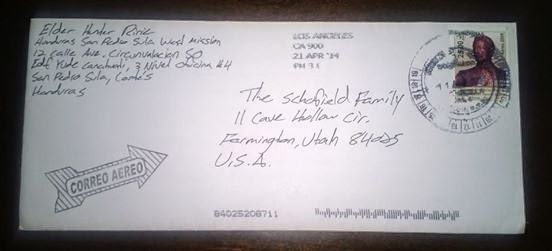 Elder Hunter
Honduras San Pedro Sula West Mission
12 Calle Ave. Circunvalacion SO
Edf. Yude Canahuati, 3 Nivel Oficina #4
San Pedro Sula, Cortés
Honduras
LOS ANGELES
CA 900
21 APR '14
PM 3 L
The Schofield Family
11 Cave Hollow Cir.
Farmington, Utah 84025
U.S.A.
CORREO AEREO
84025208711